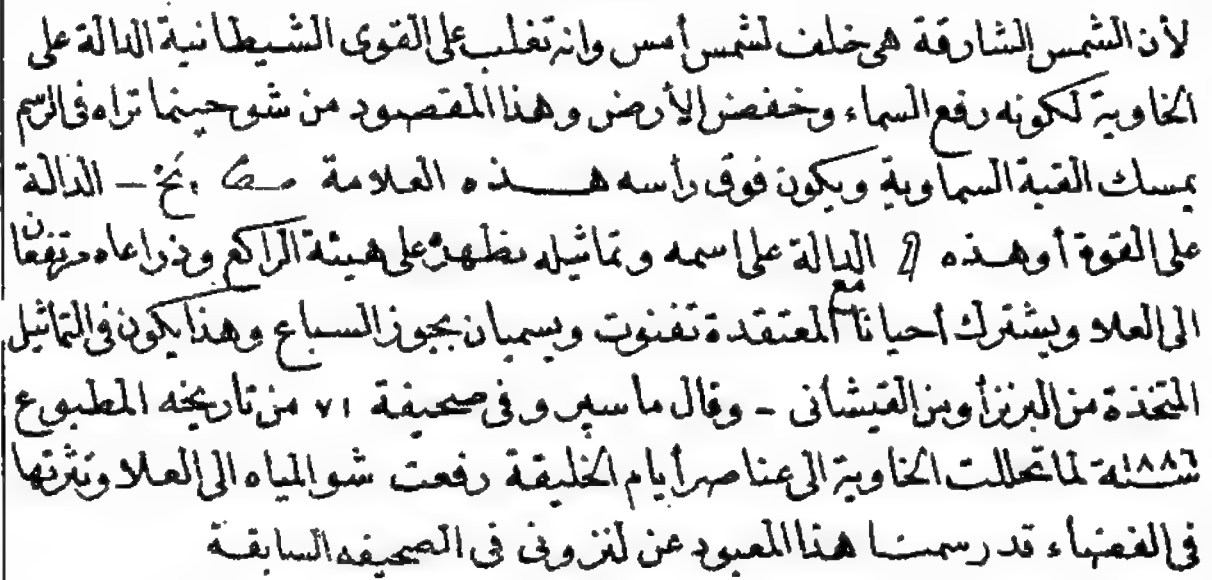 لأن الشمس الشارقة هى خلف لشمس أمس وانه تغلب على القوى الشيطانية الدالة على
الخاوية لكونه رفع السماء وخفض الأرض وهذا المقصود من شو حينما تراه فى الرسم
يمسك القبة السماوية ويكون فوق رأسه هذه العلامة نخ – الدالة
على القوة أو هذه الدالة على اسمه وتماثيله تظهره على هيئة الراكع وذراعاه مرتفعان
الى العلا ويشترك أحيانا مع المعتقدة تفنوت ويسميان بجوز السباع وهذا يكون فى التماثيل
المتخذة من البرنز أو من القيشانى – وقال ماسپرو فى صحيفة ٧١ من تاريخه المطبوع
سنة ١٨٨٦ لما تحللت الخاوية الى عناصر أيام الخليقة رفعت شو المياه الى العلا ونثرتها
فى الفضاء قد رسمنا هذا المعبود عن لنزونى فى الصحيفه السابقة